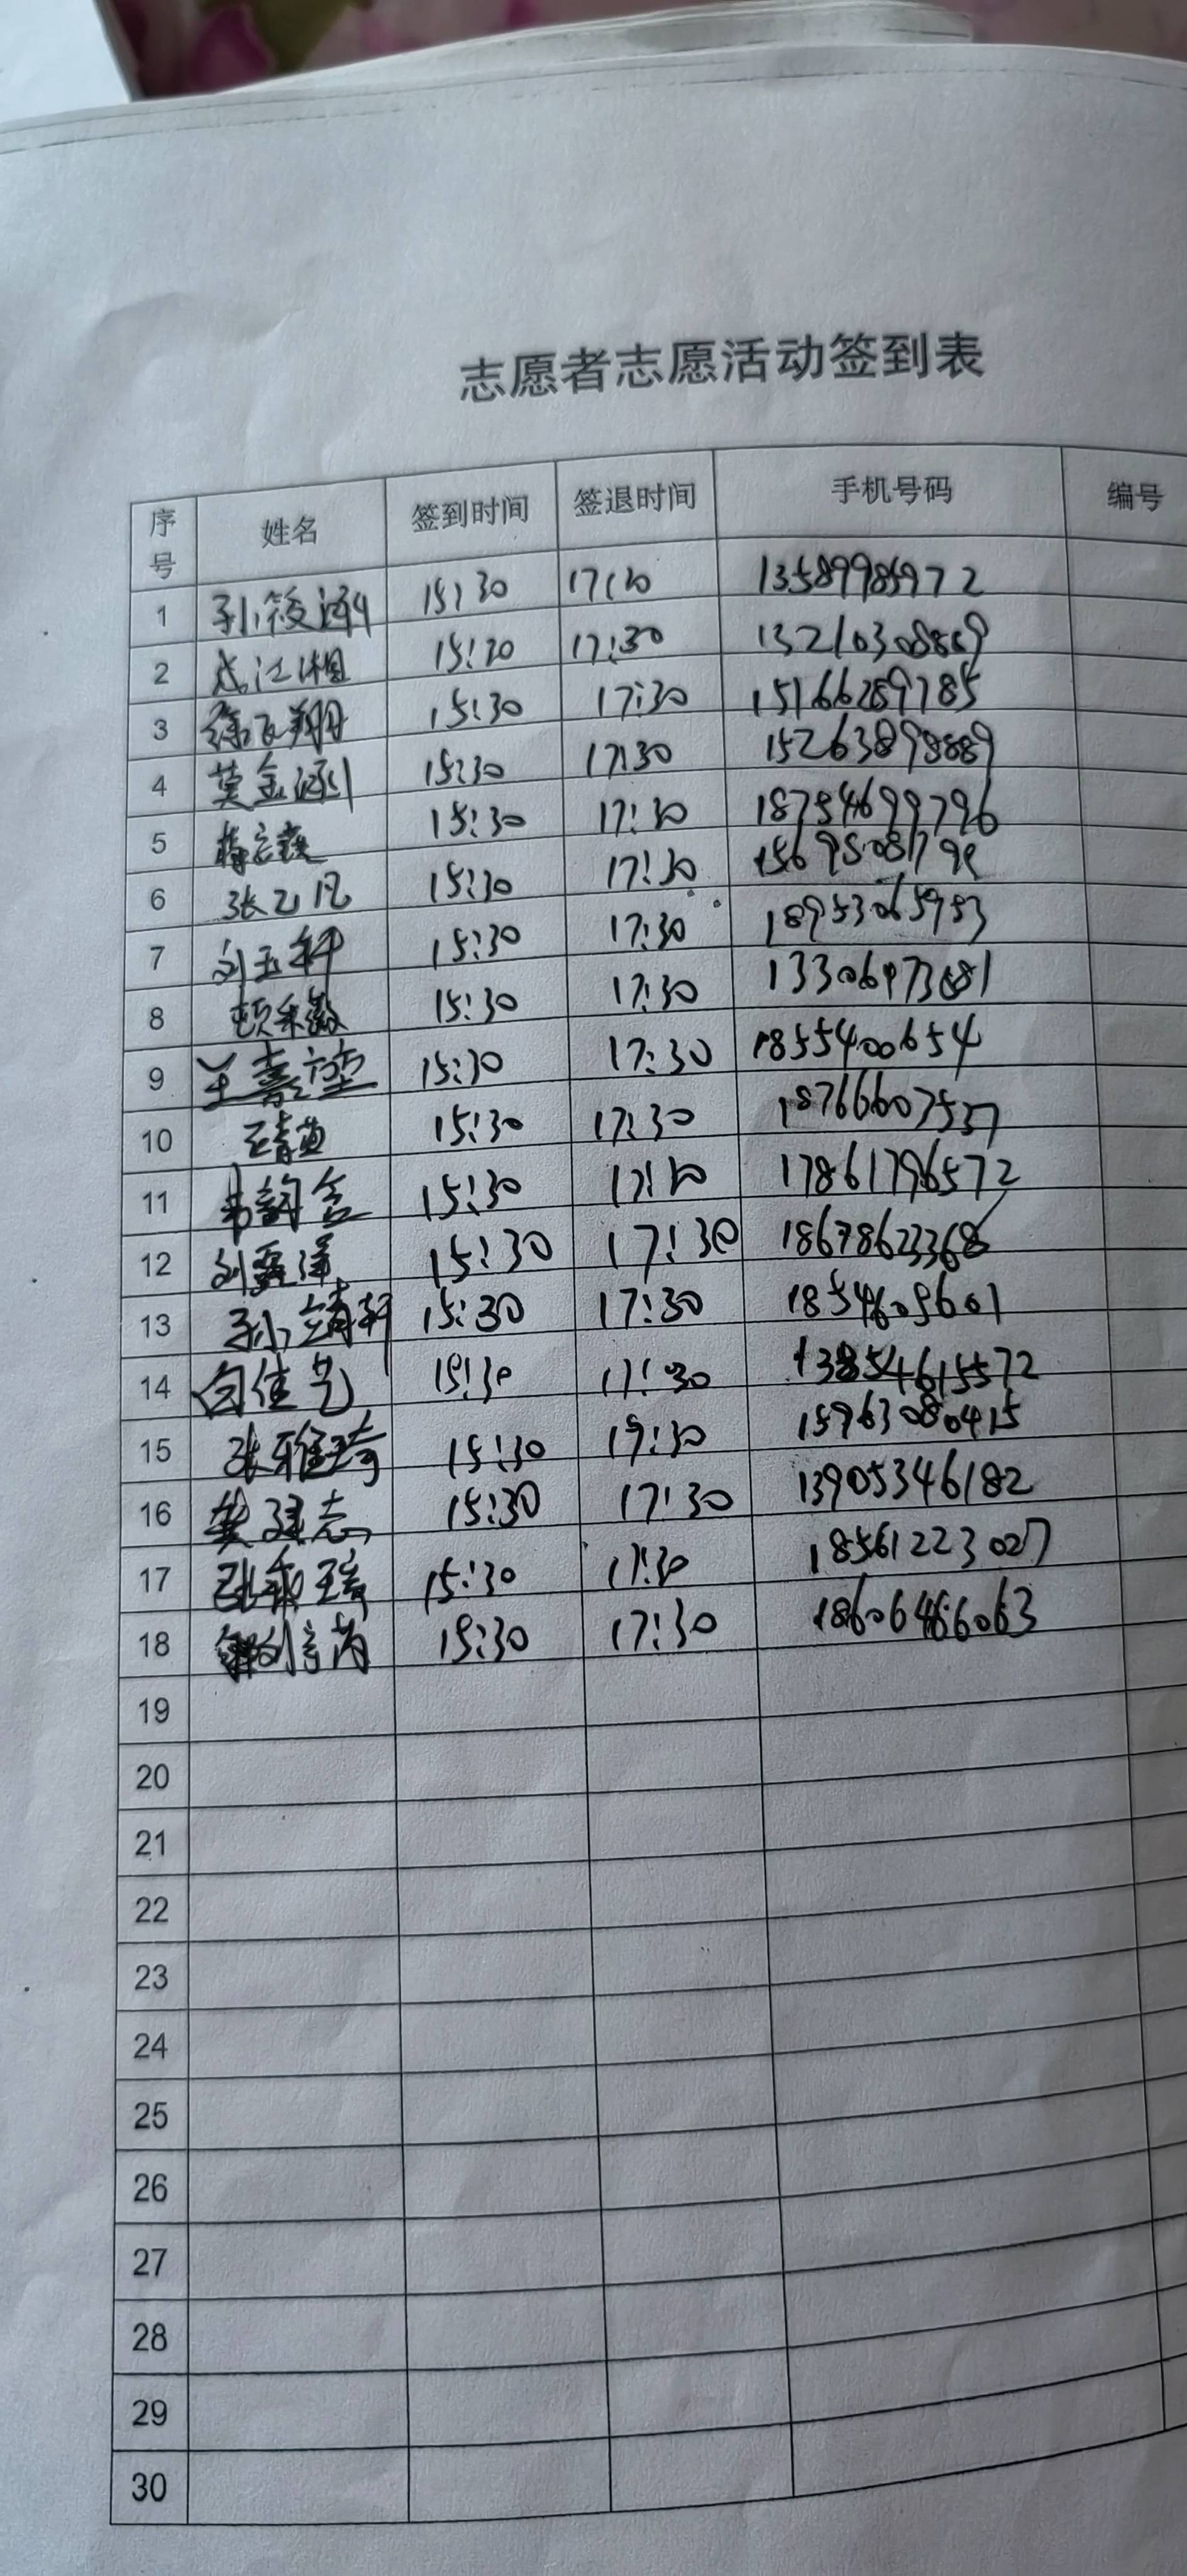 志愿者志愿活动签到表
序号 姓名 签到时间 签退时间 手机号码 编号
1 孙筱涵 15:30 17:30 13589985972
2 江湘 15:30 17:30 13210308869
3 徐飞翔 15:30 17:30 15166289785
4 莫金涵 15:30 17:30 15263898889
5 15:30 17:30 18754699796
6 张乙凡 15:30 17:30
7 刘玉轩 15:30 17:30
8 15:30 17:30
9 15:30 17:30 1855400654
10 15:30 17:30 18766607537
11 15:30 17:30 17861796572
12 15:30 17:30 18678623368
13 孙靖轩 15:30 17:30 1854609601
14 向佳艺 15:30 17:30 13854615572
15 张雅琦 15:30 17:30 15963080415
16 15:30 17:30 13905346182
17 15:30 17:30 18561223027
18 15:30 17:30 18606466063
19
20
21
22
23
24
25
26
27
28
29
30